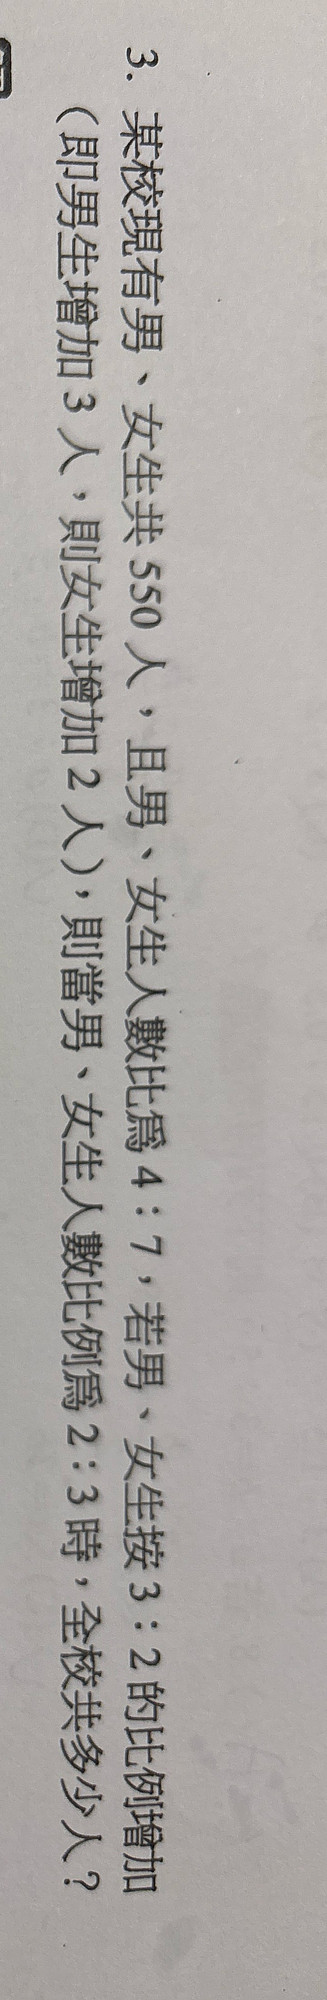 3. 某校現有男、女生共 550 人，且男、女生人數比為 4：7，若男、女生按 3：2 的比例增加
（即男生增加 3 人，則女生增加 2 人），則當男、女生人數比例為 2：3 時，全校共多少人？